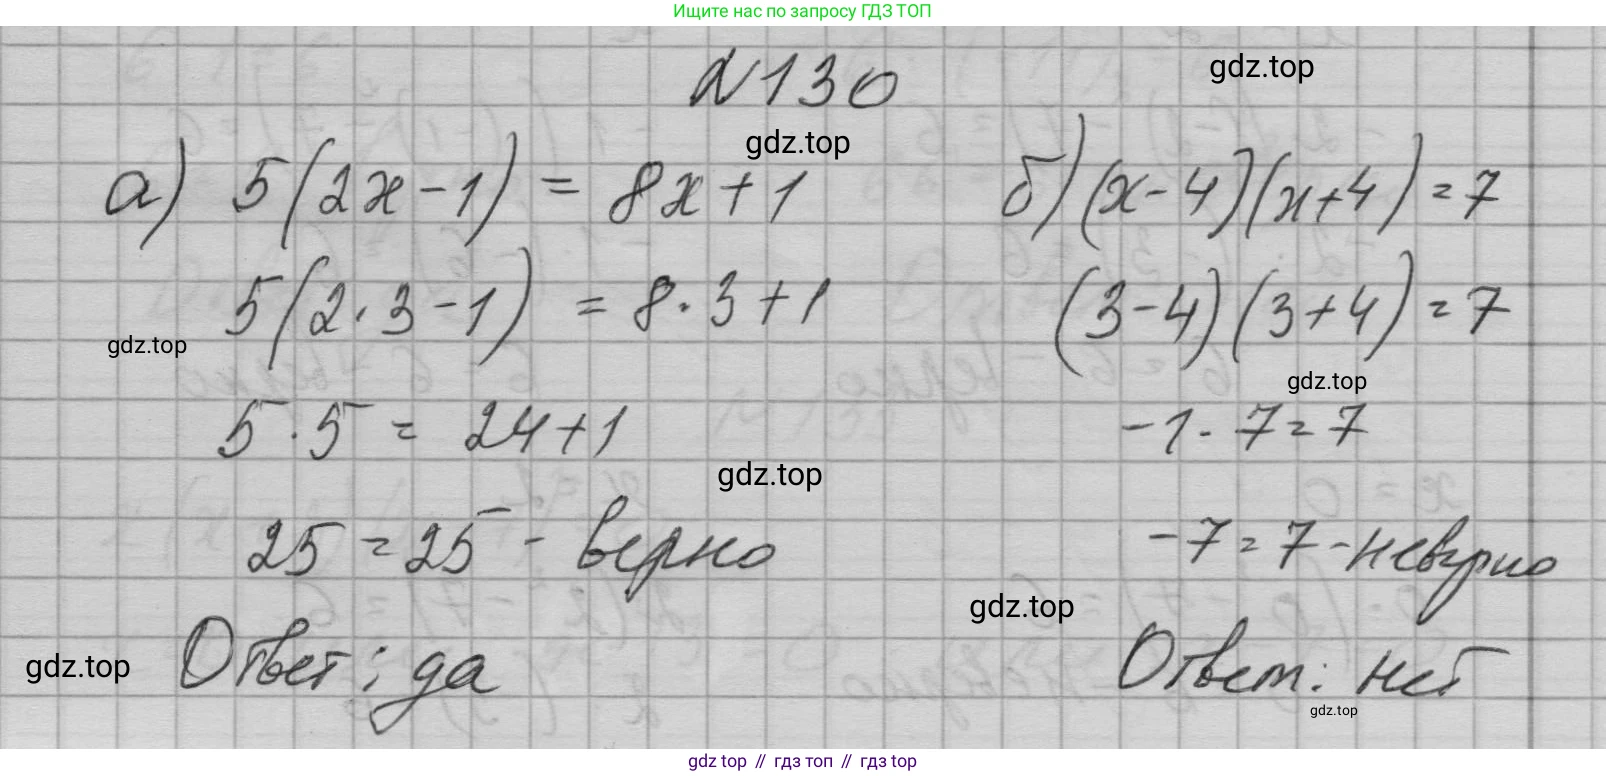 Ищите нас по запросу ГДЗ ТОП
№130
gdz.top
gdz.top
а) 5(2x-1) = 8x+1
5(2·3-1) = 8·3+1
gdz.top
5·5 = 24+1
gdz.top
25 = 25 - верно
Ответ: да
gdz.top
б) (x-4)(x+4) = 7
(3-4)(3+4) = 7
gdz.top
-1·7 = 7
-7 = 7 - неверно
gdz.top
Ответ: нет
gdz.top
gdz top // гдз топ // gdz top